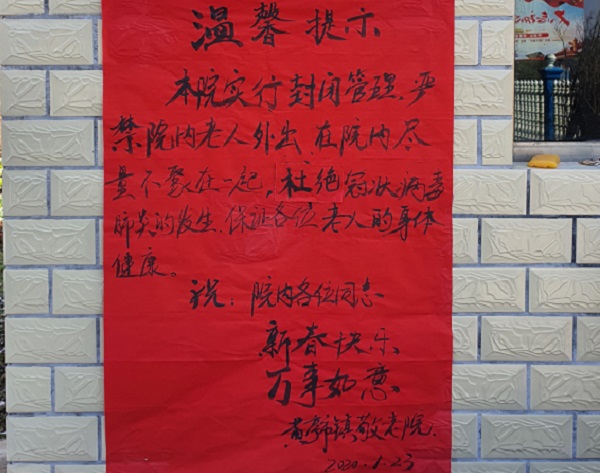 温馨提示
本院实行封闭管理,严
禁院内老人外出,在院内尽
量不聚在一起,杜绝冠状病毒
肺炎的发生,保证各位老人的身体
健康。
祝:院内各位同志
新春快乐
万事如意
镇敬老院
2020.1.23